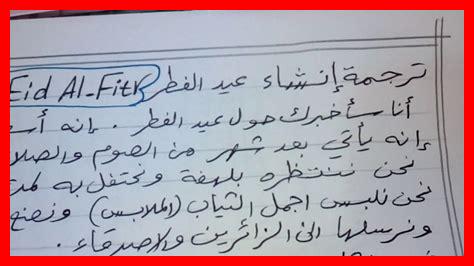 ترجمة إنشاء عيد الفطر Eid Al-Fitr
أنا سأخبرك حول عيد الفطر . إنه
إنه يأتي بعد شهر من الصوم والصلا
نحن ننتظره بلهفة ونحتفل به لمد
نحن نلبس اجمل الثياب (الملابس) ونصنع
ونرسلها الى الزائرين والاصدقاء .